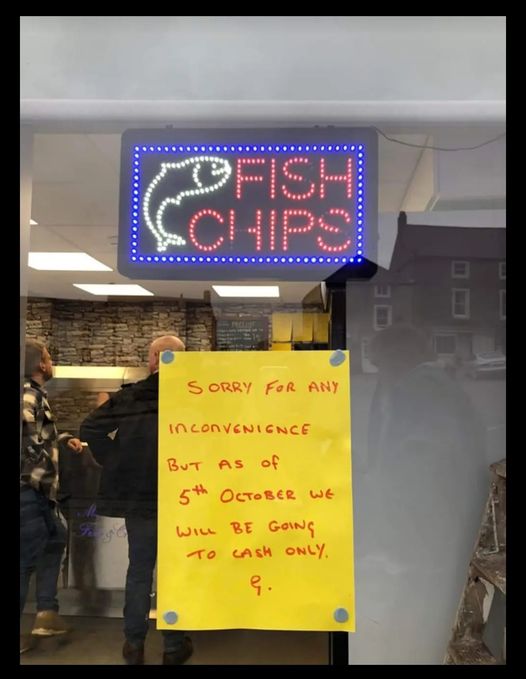 FISH
CHIPS
SORRY FOR ANY
INCONVENIENCE
BUT AS OF
5th OCTOBER WE
WILL BE GOING
TO CASH ONLY.
G.